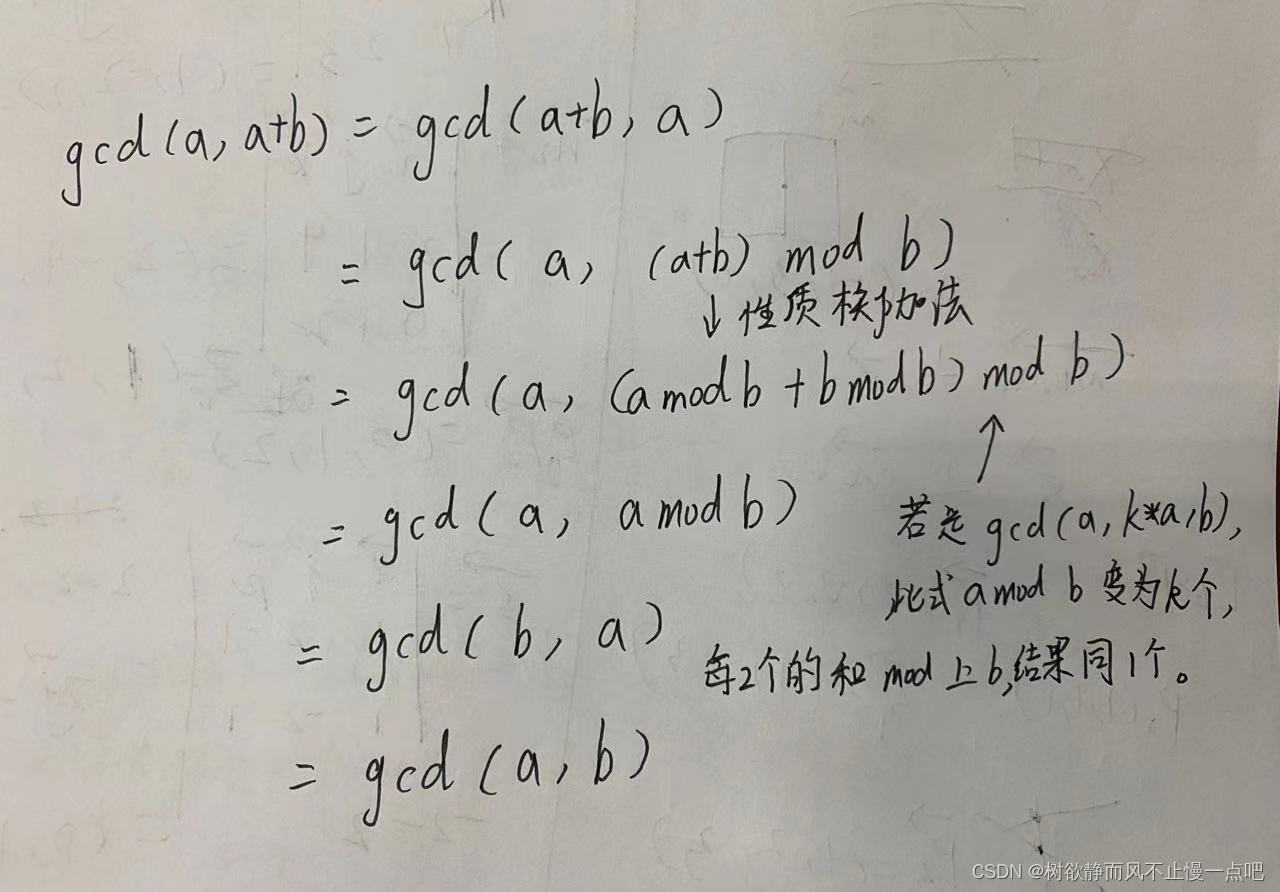 gcd(a, a+b) = gcd(a+b, a)
= gcd(a, (a+b) mod b)
↓性质 模加法
= gcd(a, (a mod b + b mod b) mod b)
↑
= gcd(a, a mod b)
若是 gcd(a, k*a,b),
此式 a mod b 变为k个,
= gcd(b, a)
每2个的和 mod 上 b,结果同1个。
= gcd(a, b)
CSDN @树欲静而风不止慢一点吧